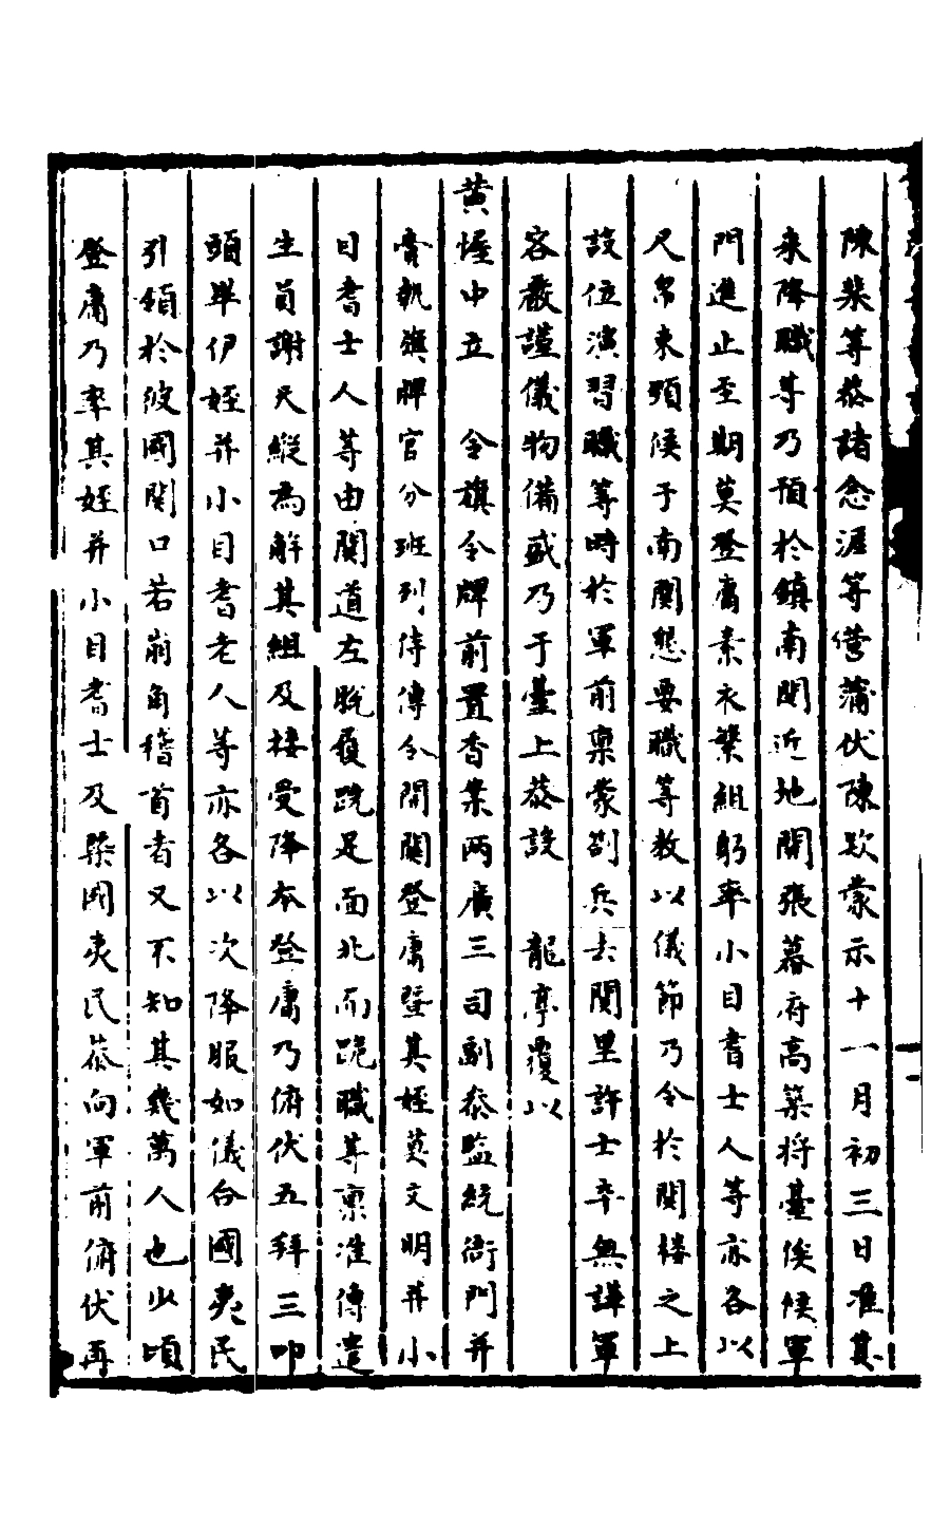 陳桒等恭諸念涯等營蒲伏陳欵蒙示十一月初三日准其
來降職等乃預於鎮南関近地開張幕府高築將臺俟候軍
門進止至期莫登庸素衣繫組躬率小目耆士人等亦各以
尺帛束頸候于南関懇要職等教以儀節乃令於関楼之上
設位演習職等時於軍前稟蒙劄兵去関里許士卒無譁軍
容嚴謹儀物備盛乃于臺上恭設 龍亭覆以
黄幄中立 令旗令牌前置香案两廣三司副叅監統衙門并
賫執旗牌官分班列侍傳令開関登庸曁其姪莫文明并小
目耆士人等由関道左脫履跣足面北而跪職等稟准傳遣
生員謝天縱為解其組及接受降本登庸乃俯伏五拜三叩
頭畢伊姪并小目耆老人等亦各以次降服如儀合國夷民
引領於彼國関口若崩角稽首者又不知其幾萬人也少頃
登庸乃率其姪并小目耆士及桒國夷民恭向軍前俯伏再